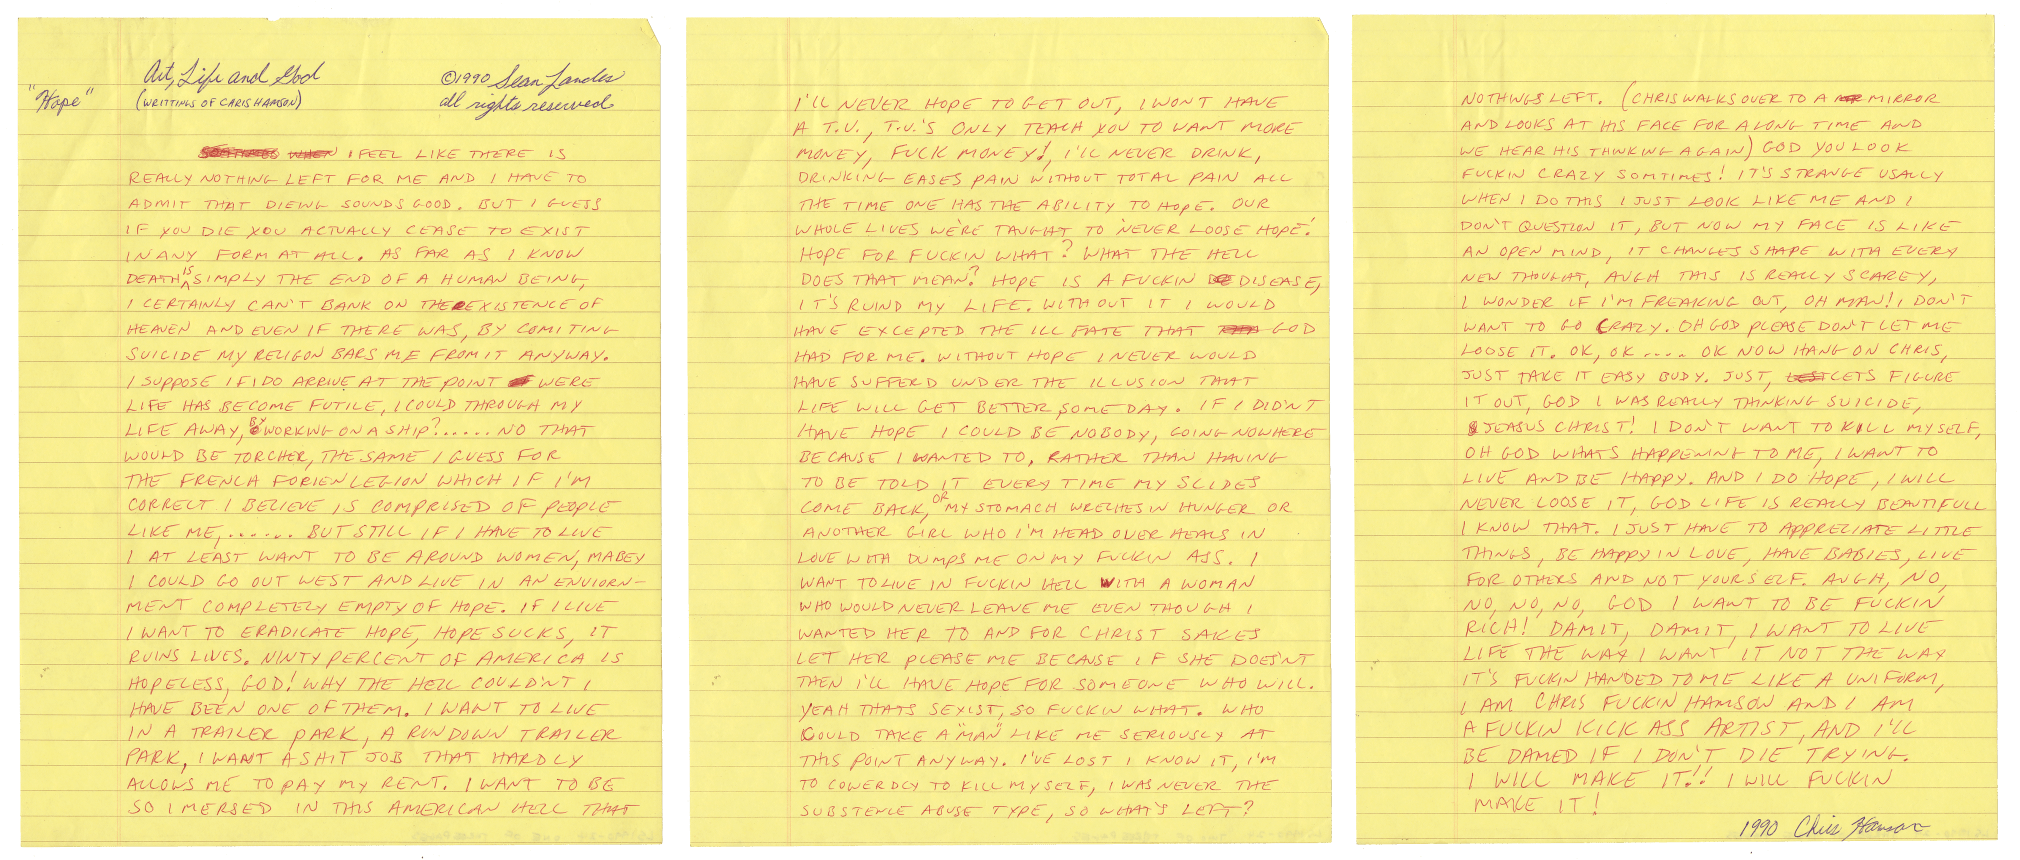 Art, Life and God
©1990 Sean Landes
"Hope"
(WRITTINGS OF CHRIS HAMSON)
all rights reserved
WHEN I FEEL LIKE THERE IS
REALLY NOTHING LEFT FOR ME AND I HAVE TO
ADMIT THAT DIEING SOUNDS GOOD. BUT I GUESS
IF YOU DIE YOU ACTUALLY CEASE TO EXIST
IN ANY FORM AT ALL. AS FAR AS I KNOW
DEATH IS SIMPLY THE END OF A HUMAN BEING,
I CERTAINLY CAN'T BANK ON THE EXISTENCE OF
HEAVEN AND EVEN IF THERE WAS, BY COMITING
SUICIDE MY RELIGON BARS ME FROM IT ANYWAY.
I SUPPOSE IF I DO ARRIVE AT THE POINT WERE
LIFE HAS BECOME FUTILE, I COULD THROUGH MY
LIFE AWAY, BY WORKING ON A SHIP?..... NO THAT
WOULD BE TORCHER, THE SAME I GUESS FOR
THE FRENCH FORIEN LEGION WHICH IF I'M
CORRECT I BELIEVE IS COMPRISED OF PEOPLE
LIKE ME,...... BUT STILL IF I HAVE TO LIVE
I AT LEAST WANT TO BE AROUND WOMEN, MABEY
I COULD GO OUT WEST AND LIVE IN AN ENVIORN-
MENT COMPLETELY EMPTY OF HOPE. IF I LIVE
I WANT TO ERADICATE HOPE, HOPE SUCKS, IT
RUINS LIVES. NINTY PERCENT OF AMERICA IS
HOPELESS, GOD! WHY THE HELL COULDN'T I
HAVE BEEN ONE OF THEM. I WANT TO LIVE
IN A TRAILER PARK, A RUN DOWN TRAILER
PARK, I WANT A SHIT JOB THAT HARDLY
ALLOWS ME TO PAY MY RENT. I WANT TO BE
SO IMERSED IN THIS AMERICAN HELL THAT
I'LL NEVER HOPE TO GET OUT, I WONT HAVE
A T.V., T.V.'S ONLY TEACH YOU TO WANT MORE
MONEY, FUCK MONEY!, I'LL NEVER DRINK,
DRINKING EASES PAIN WITHOUT TOTAL PAIN ALL
THE TIME ONE HAS THE ABILITY TO HOPE. OUR
WHOLE LIVES WE'RE TAUGHT TO 'NEVER LOOSE HOPE'.
HOPE FOR FUCKIN WHAT? WHAT THE HELL
DOES THAT MEAN? HOPE IS A FUCKIN DISEASE,
IT'S RUIND MY LIFE. WITHOUT IT I WOULD
HAVE EXCEPTED THE ILL FATE THAT GOD
HAD FOR ME. WITHOUT HOPE I NEVER WOULD
HAVE SUFFERD UNDER THE ILLUSION THAT
LIFE WILL GET BETTER SOME DAY. IF I DIDN'T
HAVE HOPE I COULD BE NOBODY, GOING NOWHERE
BECAUSE I WANTED TO, RATHER THAN HAVING
TO BE TOLD IT EVERY TIME MY SLIDES
COME BACK, OR MY STOMACH WRECHES IN HUNGER OR
ANOTHER GIRL WHO I'M HEAD OVER HEALS IN
LOVE WITH DUMPS ME ON MY FUCKIN ASS. I
WANT TO LIVE IN FUCKIN HELL WITH A WOMAN
WHO WOULD NEVER LEAVE ME EVEN THOUGH I
WANTED HER TO AND FOR CHRIST SAKES
LET HER PLEASE ME BECAUSE IF SHE DOESN'T
THEN I'LL HAVE HOPE FOR SOMEONE WHO WILL.
YEAH THATS SEXIST, SO FUCKIN WHAT. WHO
COULD TAKE A "MAN" LIKE ME SERIOUSLY AT
THIS POINT ANYWAY. I'VE LOST I KNOW IT, I'M
TO COWERDLY TO KILL MYSELF, I WAS NEVER THE
SUBSTENCE ABUSE TYPE, SO WHAT'S LEFT?
NOTHINGS LEFT. (CHRIS WALKS OVER TO A MIRROR
AND LOOKS AT HIS FACE FOR A LONG TIME AND
WE HEAR HIS THINKING AGAIN) GOD YOU LOOK
FUCKIN CRAZY SOMTIMES! IT'S STRANGE USALLY
WHEN I DO THIS I JUST LOOK LIKE ME AND I
DON'T QUESTION IT, BUT NOW MY FACE IS LIKE
AN OPEN MIND, IT CHANGES SHAPE WITH EVERY
NEW THOUGHT, AUGH THIS IS REALLY SCAREY,
I WONDER IF I'M FREAKING OUT, OH MAN! I DON'T
WANT TO GO CRAZY. OH GOD PLEASE DON'T LET ME
LOOSE IT. OK, OK .... OK NOW HANG ON CHRIS,
JUST TAKE IT EASY BUDY. JUST, LETS FIGURE
IT OUT, GOD I WAS REALLY THINKING SUICIDE,
JEASUS CHRIST! I DON'T WANT TO KILL MYSELF,
OH GOD WHATS HAPPENING TO ME, I WANT TO
LIVE AND BE HAPPY. AND I DO HOPE, I WILL
NEVER LOOSE IT, GOD LIFE IS REALLY BEAUTIFULL
I KNOW THAT. I JUST HAVE TO APPRECIATE LITTLE
THINGS, BE HAPPY IN LOVE, HAVE BABIES, LIVE
FOR OTHERS AND NOT YOURSELF. AUGH, NO,
NO, NO, NO, GOD I WANT TO BE FUCKIN
RICH! DAMIT, DAMIT, I WANT TO LIVE
LIFE THE WAY I WANT IT NOT THE WAY
IT'S FUCKIN HANDED TO ME LIKE A UNIFORM,
I AM CHRIS FUCKIN HAMSON AND I AM
A FUCKIN KICK ASS ARTIST, AND I'LL
BE DAMED IF I DON'T DIE TRYING.
I WILL MAKE IT!! I WILL FUCKIN
MAKE IT!
1990 Chris Hamson